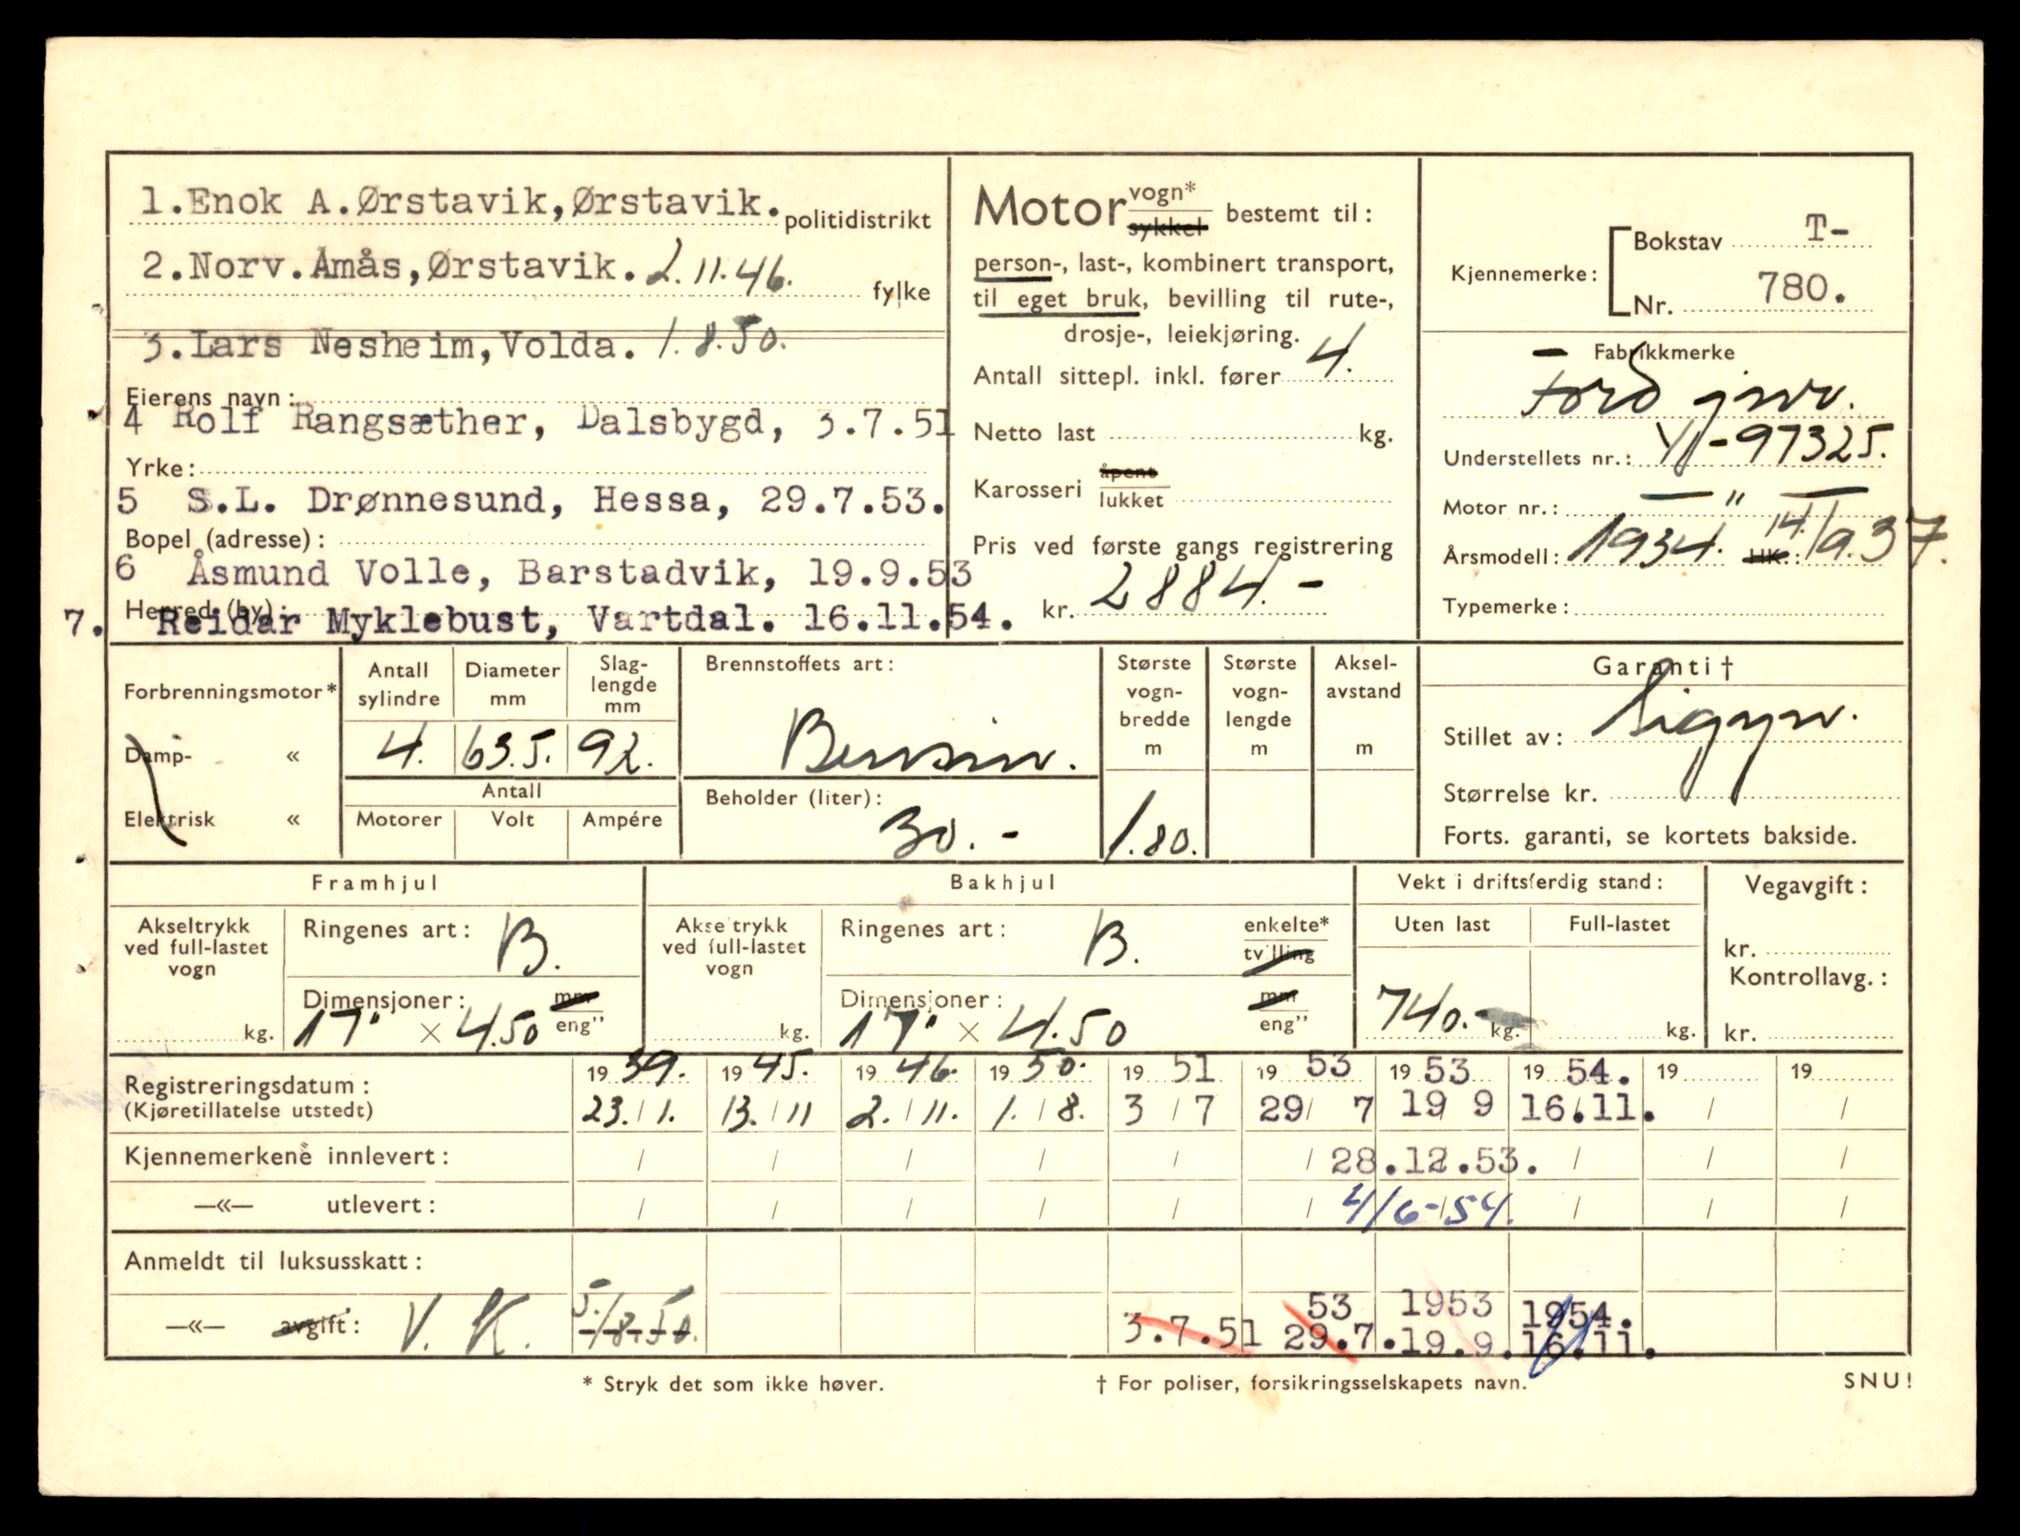 1.Enok A.Ørstavik,Ørstavik. politidistrikt
2.Norv.Åmås,Ørstavik. 2.11.46. fylke
3.Lars Nesheim,Volda. 1.8.50.
Eierens navn:
4 Rolf Rangsæther, Dalsbygd, 3.7.51
Yrke:
5 S.L. Drønnesund, Hessa, 29.7.53.
Bopel (adresse):
6 Åsmund Volle, Barstadvik, 19.9.53
Herred (by):
7. Reidar Myklebust, Vartdal. 16.11.54.
Motor vogn* sykkel bestemt til:
person-, last-, kombinert transport,
til eget bruk, bevilling til rute-,
drosje-, leiekjøring.
Antall sittepl. inkl. fører 4.
Netto last kg.
Karosseri åpent lukket
Pris ved første gangs registrering
kr. 2884.-
Kjennemerke: Bokstav T-
Nr. 780.
Fabrikkmerke
Ford jnr.
Understellets nr.: Y-97325.
Motor nr.: — " —
Årsmodell: 1934. HK.: 14/9.37.
Typemerke:
Forbrenningsmotor*
Damp- «
Elektrisk «
Antall sylindre 4.
Diameter mm 63.5.
Slag-lengde mm 92.
Antall
Motorer Volt Ampére
Brennstoffets art:
Bensin.
Beholder (liter):
30.-
Største vogn-bredde m 1.80.
Største vogn-lengde m
Aksel-avstand m
Garanti †
Stillet av: Sigyn.
Størrelse kr.
Forts. garanti, se kortets bakside.
Framhjul
Akseltrykk ved full-lastet vogn kg.
Ringenes art: B.
Dimensjoner: mm eng"
17" × 4.50
Bakhjul
Akseltrykk ved full-lastet vogn kg.
Ringenes art: B. enkelte* tvilling
Dimensjoner: mm eng"
17" × 4.50
Vekt i driftsferdig stand:
Uten last Full-lastet
740.- kg. kg.
Vegavgift:
kr.
Kontrollavg.:
kr.
Registreringsdatum: 1939. 1945. 1946. 1950. 1951 1953 1953 1954. 19 19
(Kjøretillatelse utstedt) 23./1. 13./11 2./11. 1./8. 3/7 29/7 19/9 16.11. / /
Kjennemerkene innlevert: / / / / / / 28.12.53. / / /
—«— utlevert: / / / / / / 4/6-54. / / /
Anmeldt til luksusskatt:
—«— avgift: V. K. 5./8.50. 3.7.51 53 29.7. 1953 19.9. 1954. 16.11.
* Stryk det som ikke høver.
† For poliser, forsikringsselskapets navn.
SNU!